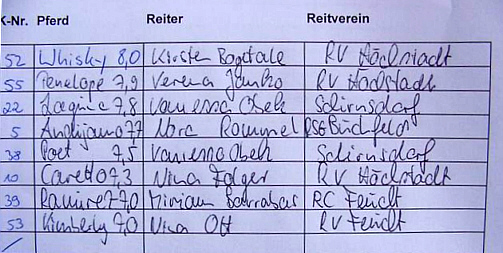 K-Nr. Pferd Reiter Reitverein
52 Whisky 8,0 Kirsten RV Höchstadt
55 Penelope 7,9 Verena Janko RV Höchstadt
22 7,8 Vanessa Schirnsdorf
5 7,7 Nora Rommel RSG Büchfeld
38 Poet 7,5 Vanessa Schirnsdorf
10 Caretto 7,3 Nina Zolger RV Höchstadt
39 Ramirez 7,0 Miriam RC Feucht
53 Kimberly 7,0 Nina Ott RV Feucht